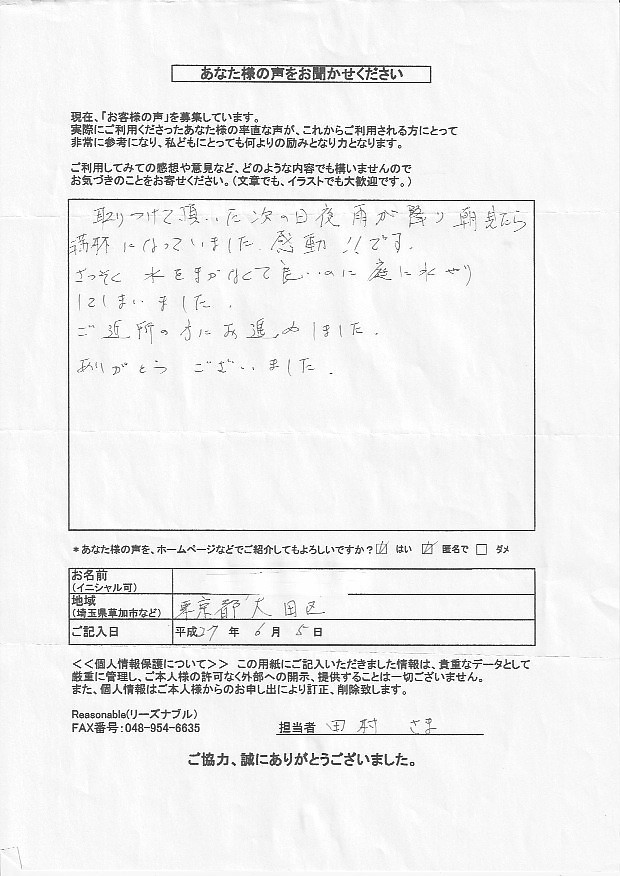 あなた様の声をお聞かせください
現在、「お客様の声」を募集しています。
実際にご利用くださったあなた様の率直な声が、これからご利用される方にとって
非常に参考になり、私どもにとっても何よりの励みとなり力となります。
ご利用してみての感想や意見など、どのような内容でも構いませんので
お気づきのことをお寄せください。(文章でも、イラストでも大歓迎です。)
取りつけて頂いた次の日夜雨が降り朝見たら
満杯になっていました。感動!!です。
さっそく水をまかなくて良いのに庭に水やり
してしまいました。
ご近所の方にお進めしました。
ありがとうございました。
*あなた様の声を、ホームページなどでご紹介してもよろしいですか? ☑ はい ☑ 匿名で □ ダメ
お名前
(イニシャル可)
地域
(埼玉県草加市など) 東京都大田区
ご記入日 平成27年6月5日
<<個人情報保護について>> この用紙にご記入いただきました情報は、貴重なデータとして
厳重に管理し、ご本人様の許可なく外部への開示、提供することは一切ございません。
また、個人情報はご本人様からのお申し出により訂正、削除致します。
Reasonable(リーズナブル)
FAX番号:048-954-6635 担当者 田村 さま
ご協力、誠にありがとうございました。